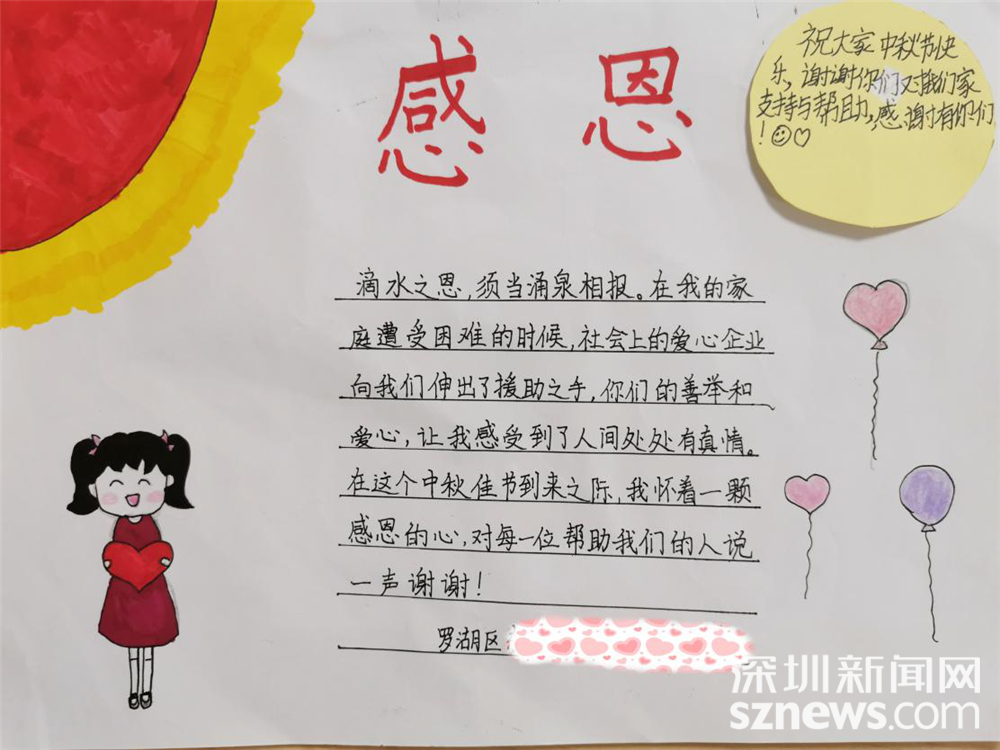 感恩
祝大家中秋节快
乐，谢谢你们对我们家
支持与帮助，感谢有你们
！
滴水之恩，须当涌泉相报。在我的家
庭遭受困难的时候，社会上的爱心企业
向我们伸出了援助之手，你们的善举和
爱心，让我感受到了人间处处有真情。
在这个中秋佳节到来之际，我怀着一颗
感恩的心，对每一位帮助我们的人说
一声谢谢！
罗湖区
深圳新闻网
sznews.com